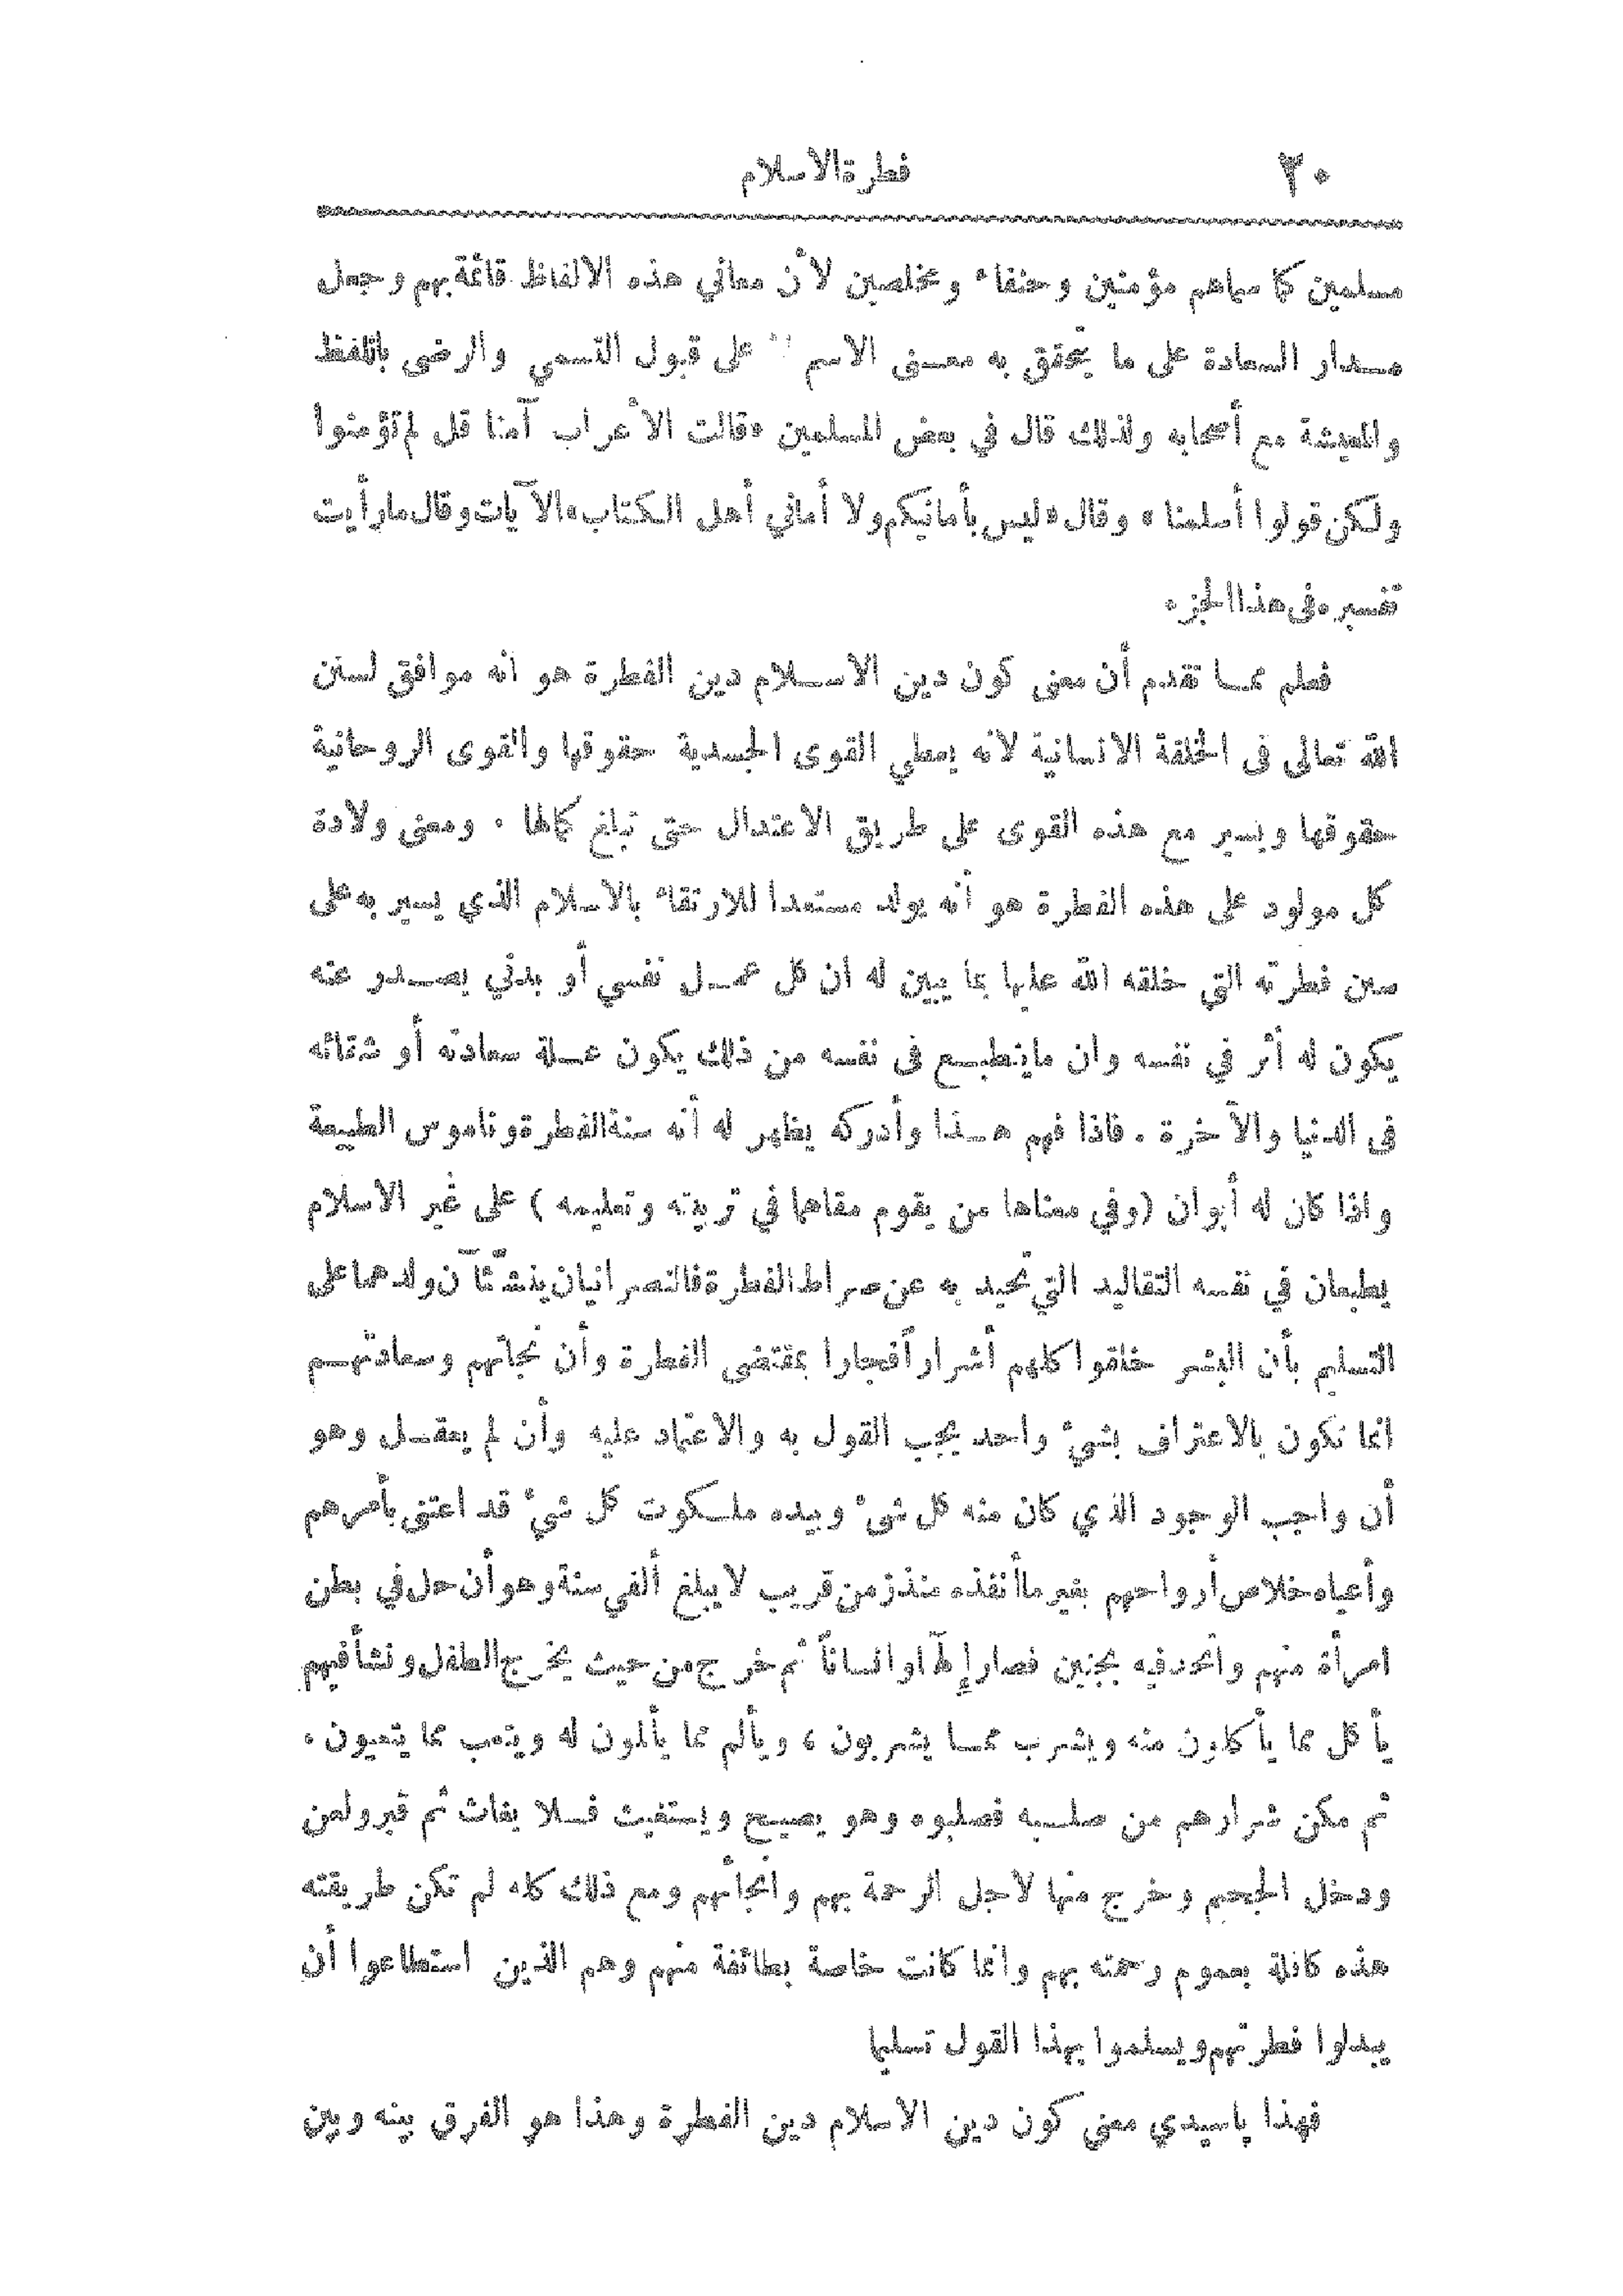 ٣٠ فطرة الاسلام
مسلمين كما سماهم مؤمنين وحنفاء ومخلصين لأن معاني هذه الالفاظ قائمة بهم وجعل
مدار السعادة على ما يتحقق به معنى الاسم على قبول التسمي والرضى باللفظ
والمعيشة مع أصحابه ولذلك قال في بعض المسلمين «قالت الأعراب آمنا قل لم تؤمنوا
ولكن قولوا أسلمنا» وقال «ليس بأمانيكم ولا أماني أهل الكتاب» الآيات وقال ما رأيت
تفسيره فى هذا الجزء
فعلم مما تقدم أن معنى كون دين الاسلام دين الفطرة هو انه موافق لسنن
الله تعالى فى الخلقة الانسانية لأنه يعطي القوى الجسدية حقوقها والقوى الروحانية
حقوقها ويسير مع هذه القوى على طريق الاعتدال حتى تبلغ كمالها . ومعنى ولادة
كل مولود على هذه الفطرة هو أنه يولد مستعدا للارتقاء بالاسلام الذي يسير به على
سنن فطرته التي خلقه الله عليها بما يبين له أن كل عمل نفسي أو بدني يصدر عنه
يكون له أثر في نفسه وان ما ينطبع فى نفسه من ذلك يكون علة سعادته أو شقائه
فى الدنيا والآخرة . فاذا فهم هذا وأدركه يظهر له أنه سنة الفطرة وناموس الطبيعة
واذا كان له أبوان (وفي معناها من يقوم مقاهما في تربيته وتعليمه) على غير الاسلام
يطبعان في نفسه التقاليد التي تحيد به عن صراط الفطرة فالنصرانيان ينشئآن ولدهما على
التسليم بأن البشر خلقوا كلهم أشراراً فجارا بمقتضى الفطرة وأن نجاتهم وسعادتهم
انما تكون بالاعتراف بشيء واحد يجب القول به والاعتماد عليه وأن لم يعقل وهو
أن واجب الوجود الذي كان منه كل شىء وبيده ملكوت كل شيء قد اعتنى بأمرهم
وأعياه خلاص أرواحهم بغير ما أنفذه منذ زمن قريب لا يبلغ ألفي سنة وهو أن حل في بطن
امرأة منهم واتحد فيه بجنين فصار إلهاً وانساناً ثم خرج من حيث يخرج الطفل ونشأ فيهم
يأكل مما يأكلون منه ويشرب مما يشربون ، ويألم مما يألمون له ويتعب مما يتعبون .
ثم مكن شرارهم من صلبه فصلبوه وهو يصيح ويستغيث فلا يغاث ثم قبر ولعن
ودخل الجحيم وخرج منها لأجل الرحمة بهم وانجأتهم ومع ذلك كله لم تكن طريقته
هذه كافلة بعموم رحمته بهم وانما كانت خاصة بطائفة منهم وهم الذين استطاعوا أن
يبدلوا فطرتهم ويسلموا بهذا القول تسليما
فهذا ياسيدي معنى كون دين الاسلام دين الفطرة وهذا هو الفرق بينه وبين